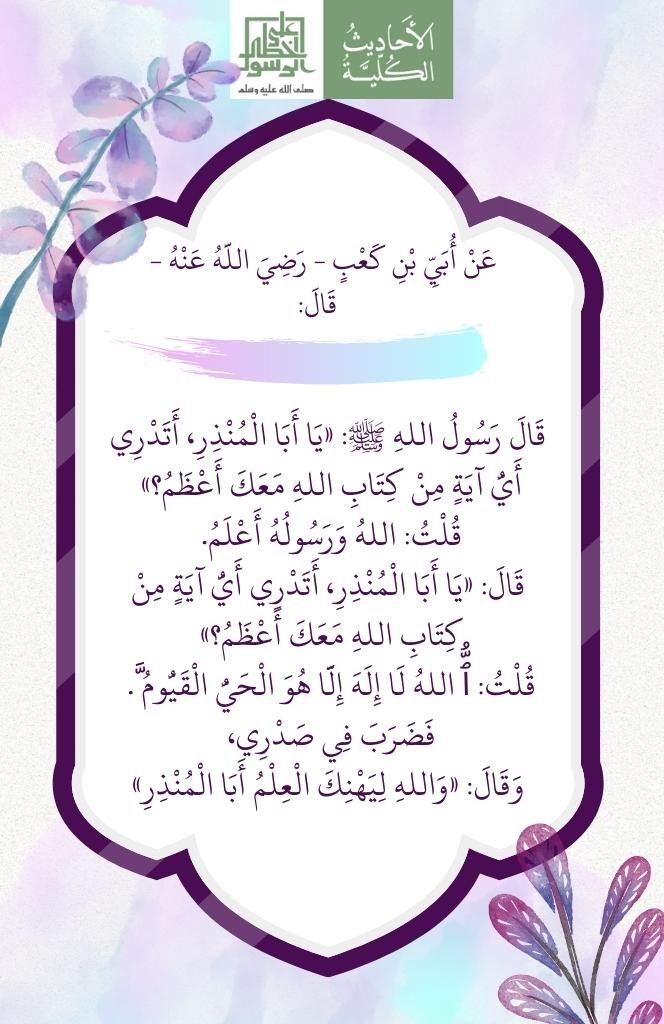 الأَحَادِيثُ
الكُلِّيَّةُ
على
خطى
الرسول
صلى الله عليه وسلم
عَنْ أُبَيِّ بْنِ كَعْبٍ - رَضِيَ اللّهُ عَنْهُ -
قَالَ:
قَالَ رَسُولُ اللهِ ﷺ: «يَا أَبَا الْمُنْذِرِ، أَتَدْرِي
أَيُّ آيَةٍ مِنْ كِتَابِ اللهِ مَعَكَ أَعْظَمُ؟»
قُلْتُ: اللهُ وَرَسُولُهُ أَعْلَمُ.
قَالَ: «يَا أَبَا الْمُنْذِرِ، أَتَدْرِي أَيُّ آيَةٍ مِنْ
كِتَابِ اللهِ مَعَكَ أَعْظَمُ؟»
قُلْتُ: ٱللهُ لَا إِلَهَ إِلَّا هُوَ الْحَيُّ الْقَيُّومُ.
فَضَرَبَ فِي صَدْرِي،
وَقَالَ: «وَاللهِ لِيَهْنِكَ الْعِلْمُ أَبَا الْمُنْذِرِ»